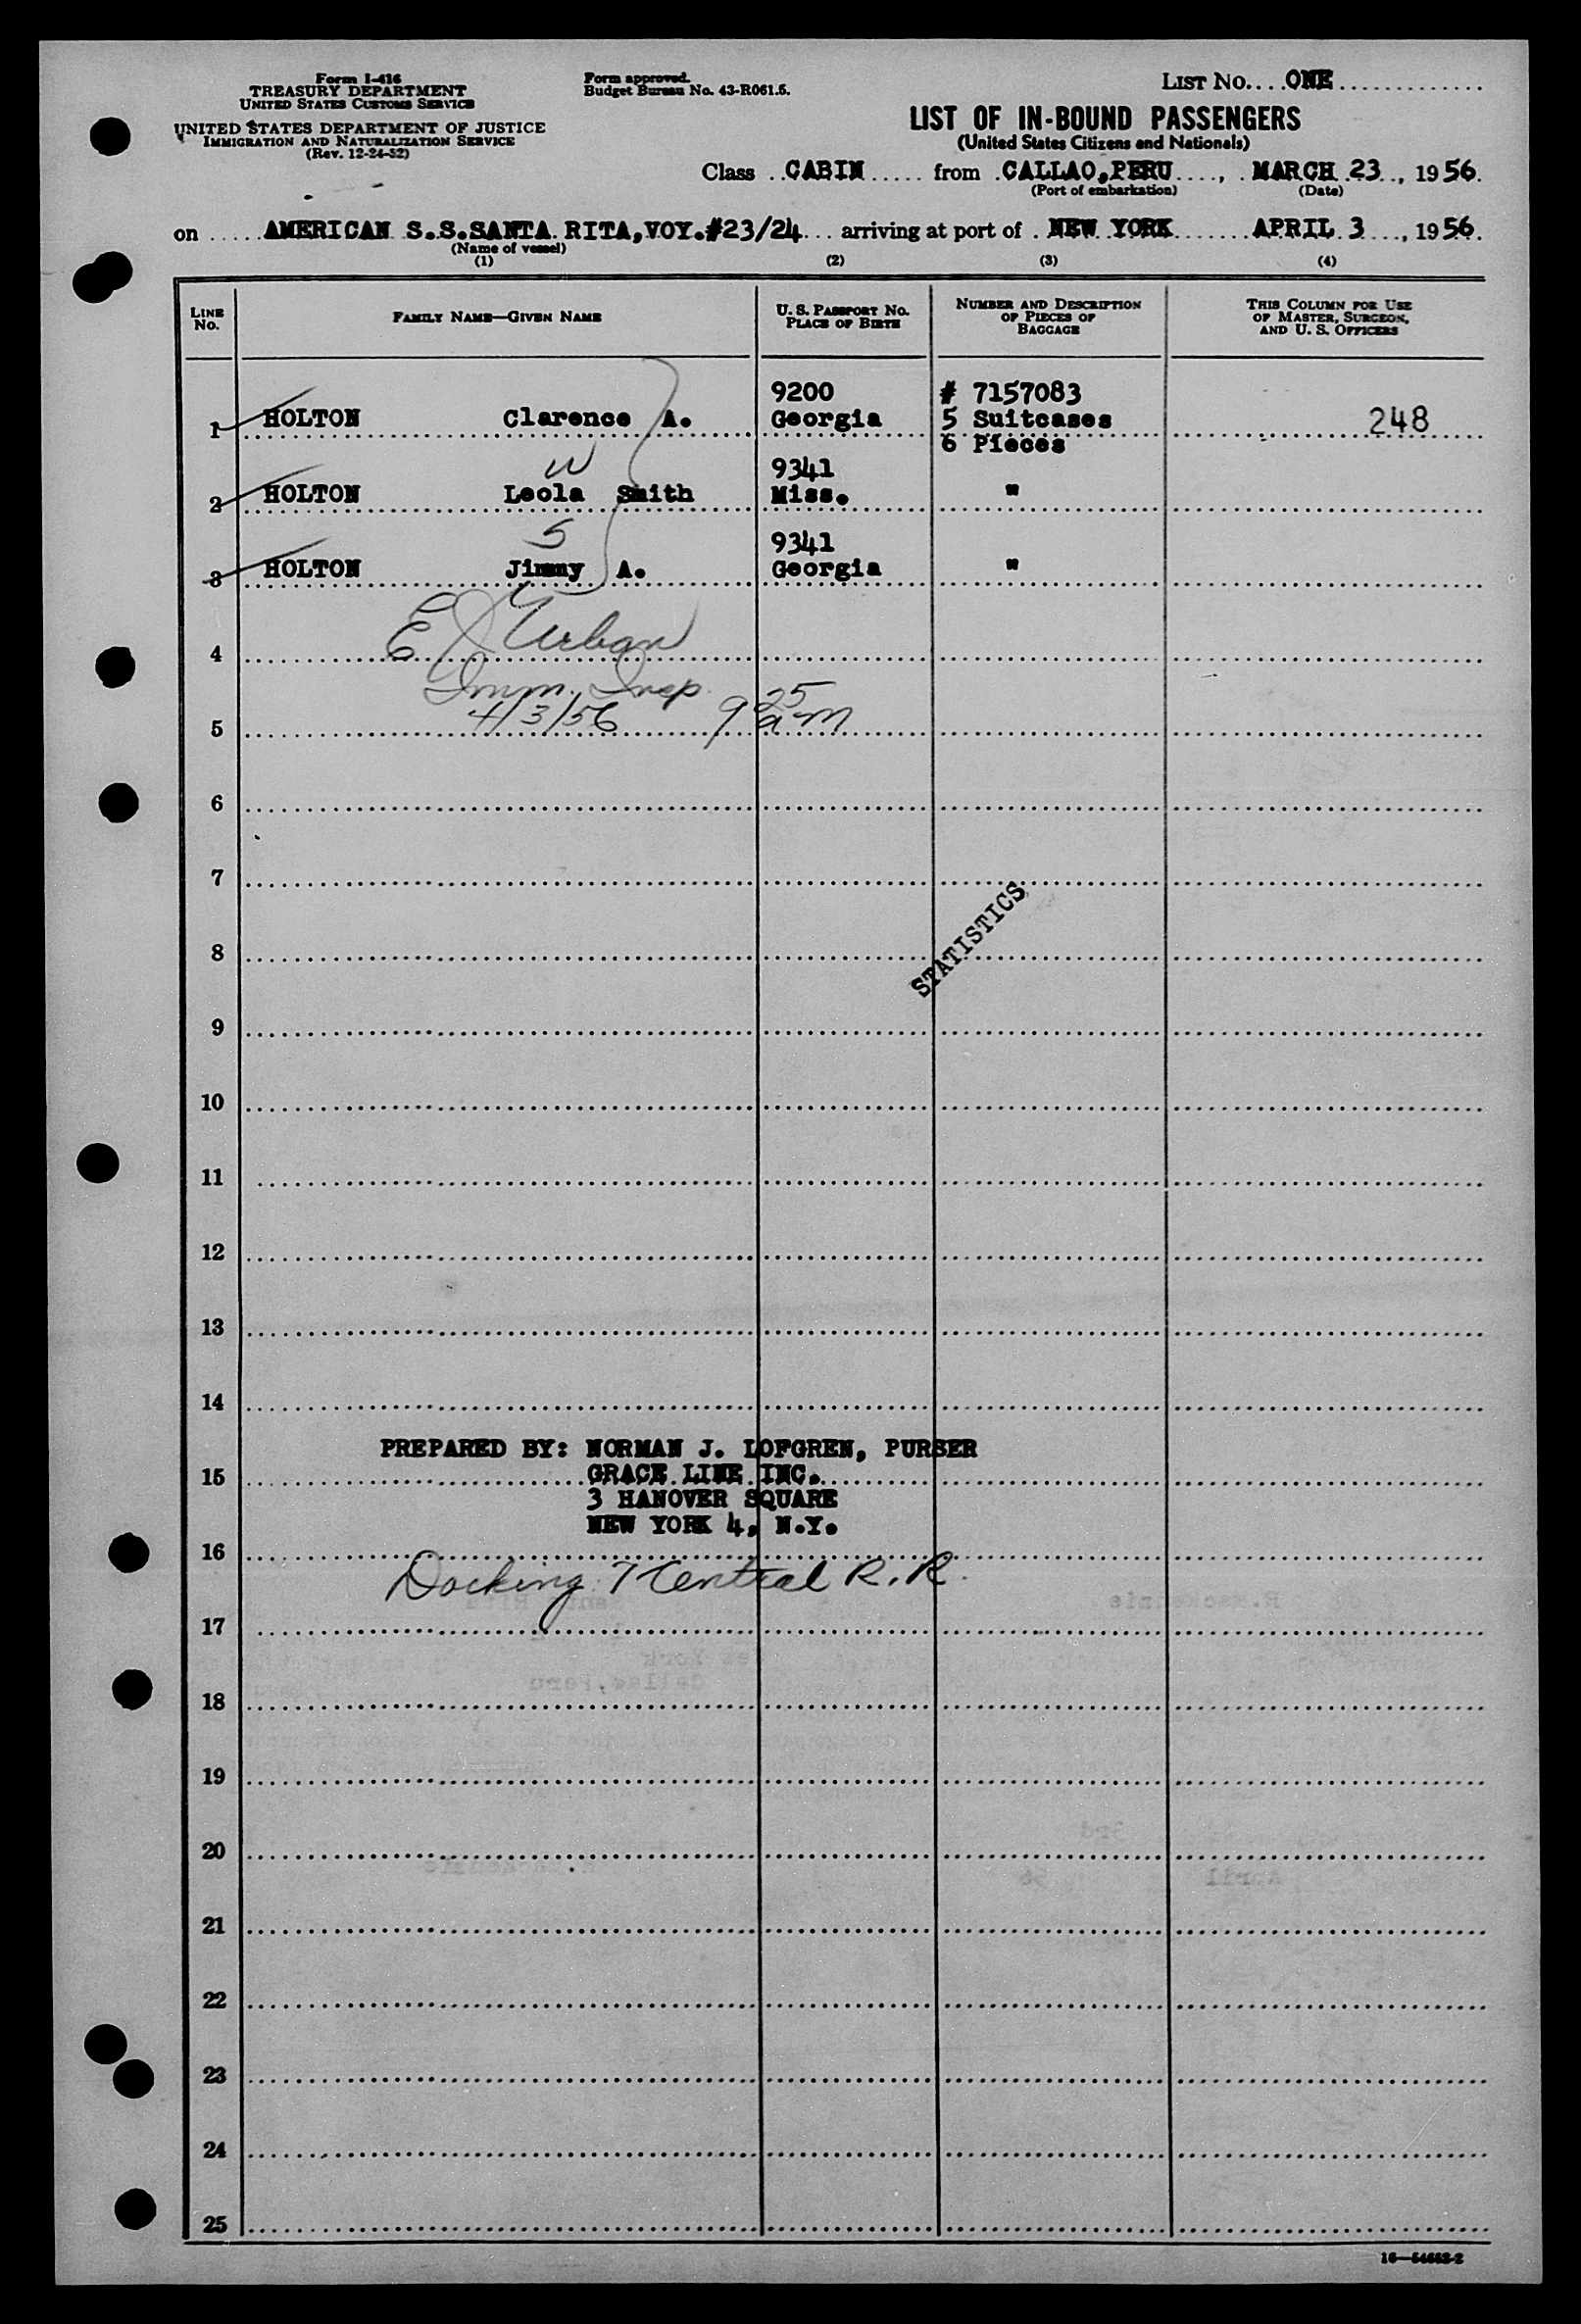 Form I-416
TREASURY DEPARTMENT
UNITED STATES CUSTOMS SERVICE
UNITED STATES DEPARTMENT OF JUSTICE
IMMIGRATION AND NATURALIZATION SERVICE
(Rev. 12-24-52)
Form approved.
Budget Bureau No. 43-R061.5.
LIST NO. ONE
LIST OF IN-BOUND PASSENGERS
(United States Citizens and Nationals)
Class CABIN from CALLAO, PERU, MARCH 23, 1956.
(Port of embarkation) (Date)
on AMERICAN S.S.SANTA RITA,VOY.#23/24 arriving at port of NEW YORK APRIL 3, 1956.
(Name of vessel)
(1) (2) (3) (4)
LINE NO. FAMILY NAME—GIVEN NAME U. S. PASSPORT NO. PLACE OF BIRTH NUMBER AND DESCRIPTION OF PIECES OF BAGGAGE THIS COLUMN FOR USE OF MASTER, SURGEON, AND U. S. OFFICERS
9200 # 7157083
1 HOLTON Clarence A. Georgia 5 Suitcases 248
6 Pieces
W 9341
2 HOLTON Leola Smith Miss. "
S 9341
3 HOLTON Jimmy A. Georgia "
4 E J Urban
Imm. Insp.
5 4/3/56 9 25 am
6
7
STATISTICS
8
9
10
11
12
13
14
PREPARED BY: NORMAN J. LOFGREN, PURSER
15 GRACE LINE INC.
3 HANOVER SQUARE
NEW YORK 4, N.Y.
16
Docking Central R.R.
17
18
19
20
21
22
23
24
25
16—54652-2